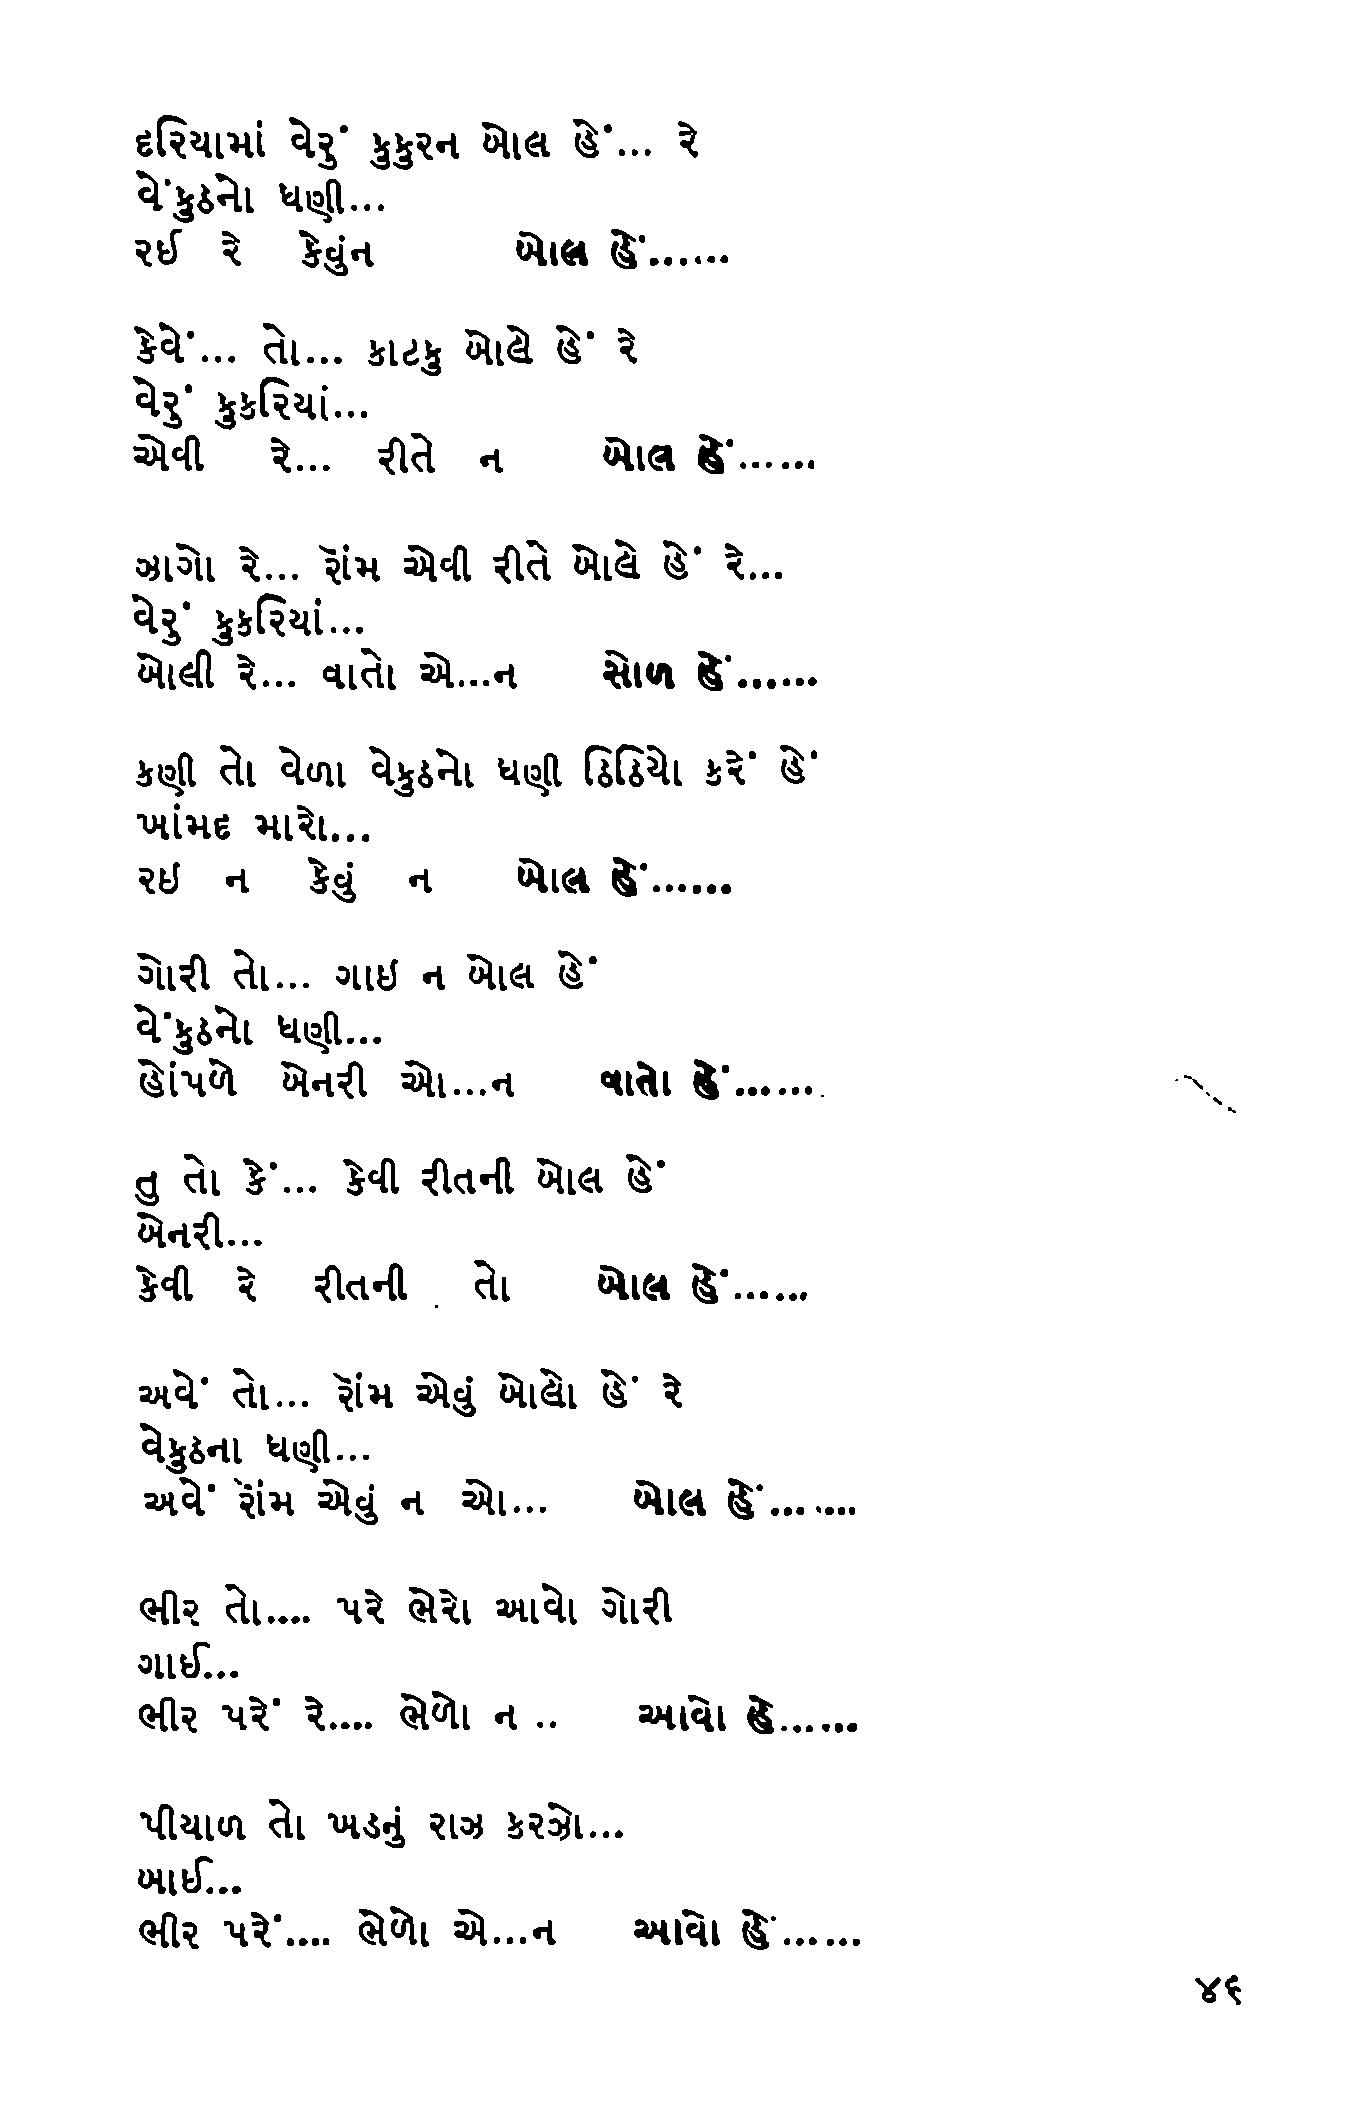 દરિયામાં વેરું કુકુરન બોલ હેં... રે
વેંકુઠનો ધણી...
રઈ રે કેવુંન બોલ હેં......
કેવેં... તો... કાટકુ બોલે હેં રે
વેરું કુકરિયાં...
એવી રે... રીતે ન બોલ હેં......
ઝાગો રે... રૉંમ એવી રીતે બોલે હેં રે...
વેરું કુકરિયાં...
બોલી રે... વાતો એ...ન સોળ હેં......
કણી તો વેળા વેકુઠનો ધણી ઠિઠિયો કરેં હેં
ખાંમદ મારો...
રઇ ન કેવું ન બોલ હેં......
ગોરી તો... ગાઇ ન બોલ હેં
વેંકુઠનો ધણી...
હોંપળે બેનરી ઓ...ન વાતો હેં......
તુ તો કેં... કેવી રીતની બોલ હેં
બેનરી...
કેવી રે રીતની તો બોલ હેં......
અવેં તો... રૉંમ એવું બોલો હેં રે
વેકુઠના ધણી...
અવેં રૉંમ એવું ન ઓ... બોલ હેં......
ભીર તો.... પરે ભેરો આવો ગોરી
ગાઈ...
ભીર પરેં રે.... ભેળો ન .. આવો હેં......
પીયાળ તો ખડનું રાઝ કરઝો...
બાઈ...
ભીર પરેં.... ભેળો એ...ન આવો હેં......
૪૯